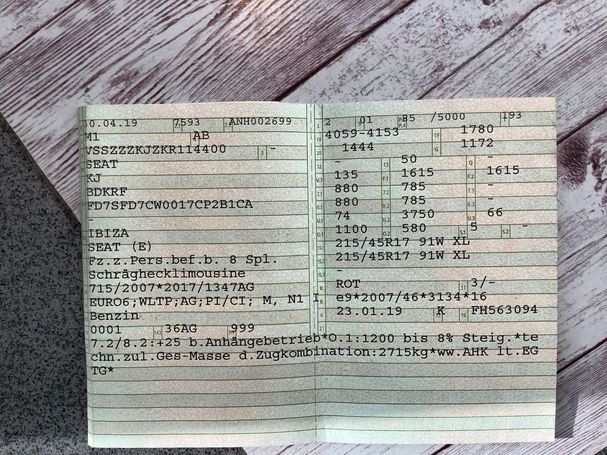 30.04.19 7593 ANH002699
M1 AB
VSSZZZKJZKR114400 -
SEAT
KJ
BDKRF
FD7SFD7CW0017CP2B1CA
IBIZA
SEAT (E)
Fz.z.Pers.bef.b. 8 Spl.
Schräghecklimousine
715/2007*2017/1347AG
EURO6;WLTP;AG;PI/CI; M, N1 I
Benzin
0001 36AG 999
2 01 85 /5000 193
4059-4153 1780
1444 1172
- 50 -
135 1615 1615
880 785 -
880 785 -
74 3750 66
1100 580 5 -
215/45R17 91W XL
215/45R17 91W XL
-
ROT 3/-
e9*2007/46*3134*16
23.01.19 K FH563094
7.2/8.2:+25 b.Anhängebetrieb*O.1:1200 bis 8% Steig.*te
chn.zul.Ges-Masse d.Zugkombination:2715kg*ww.AHK lt.EG
TG*